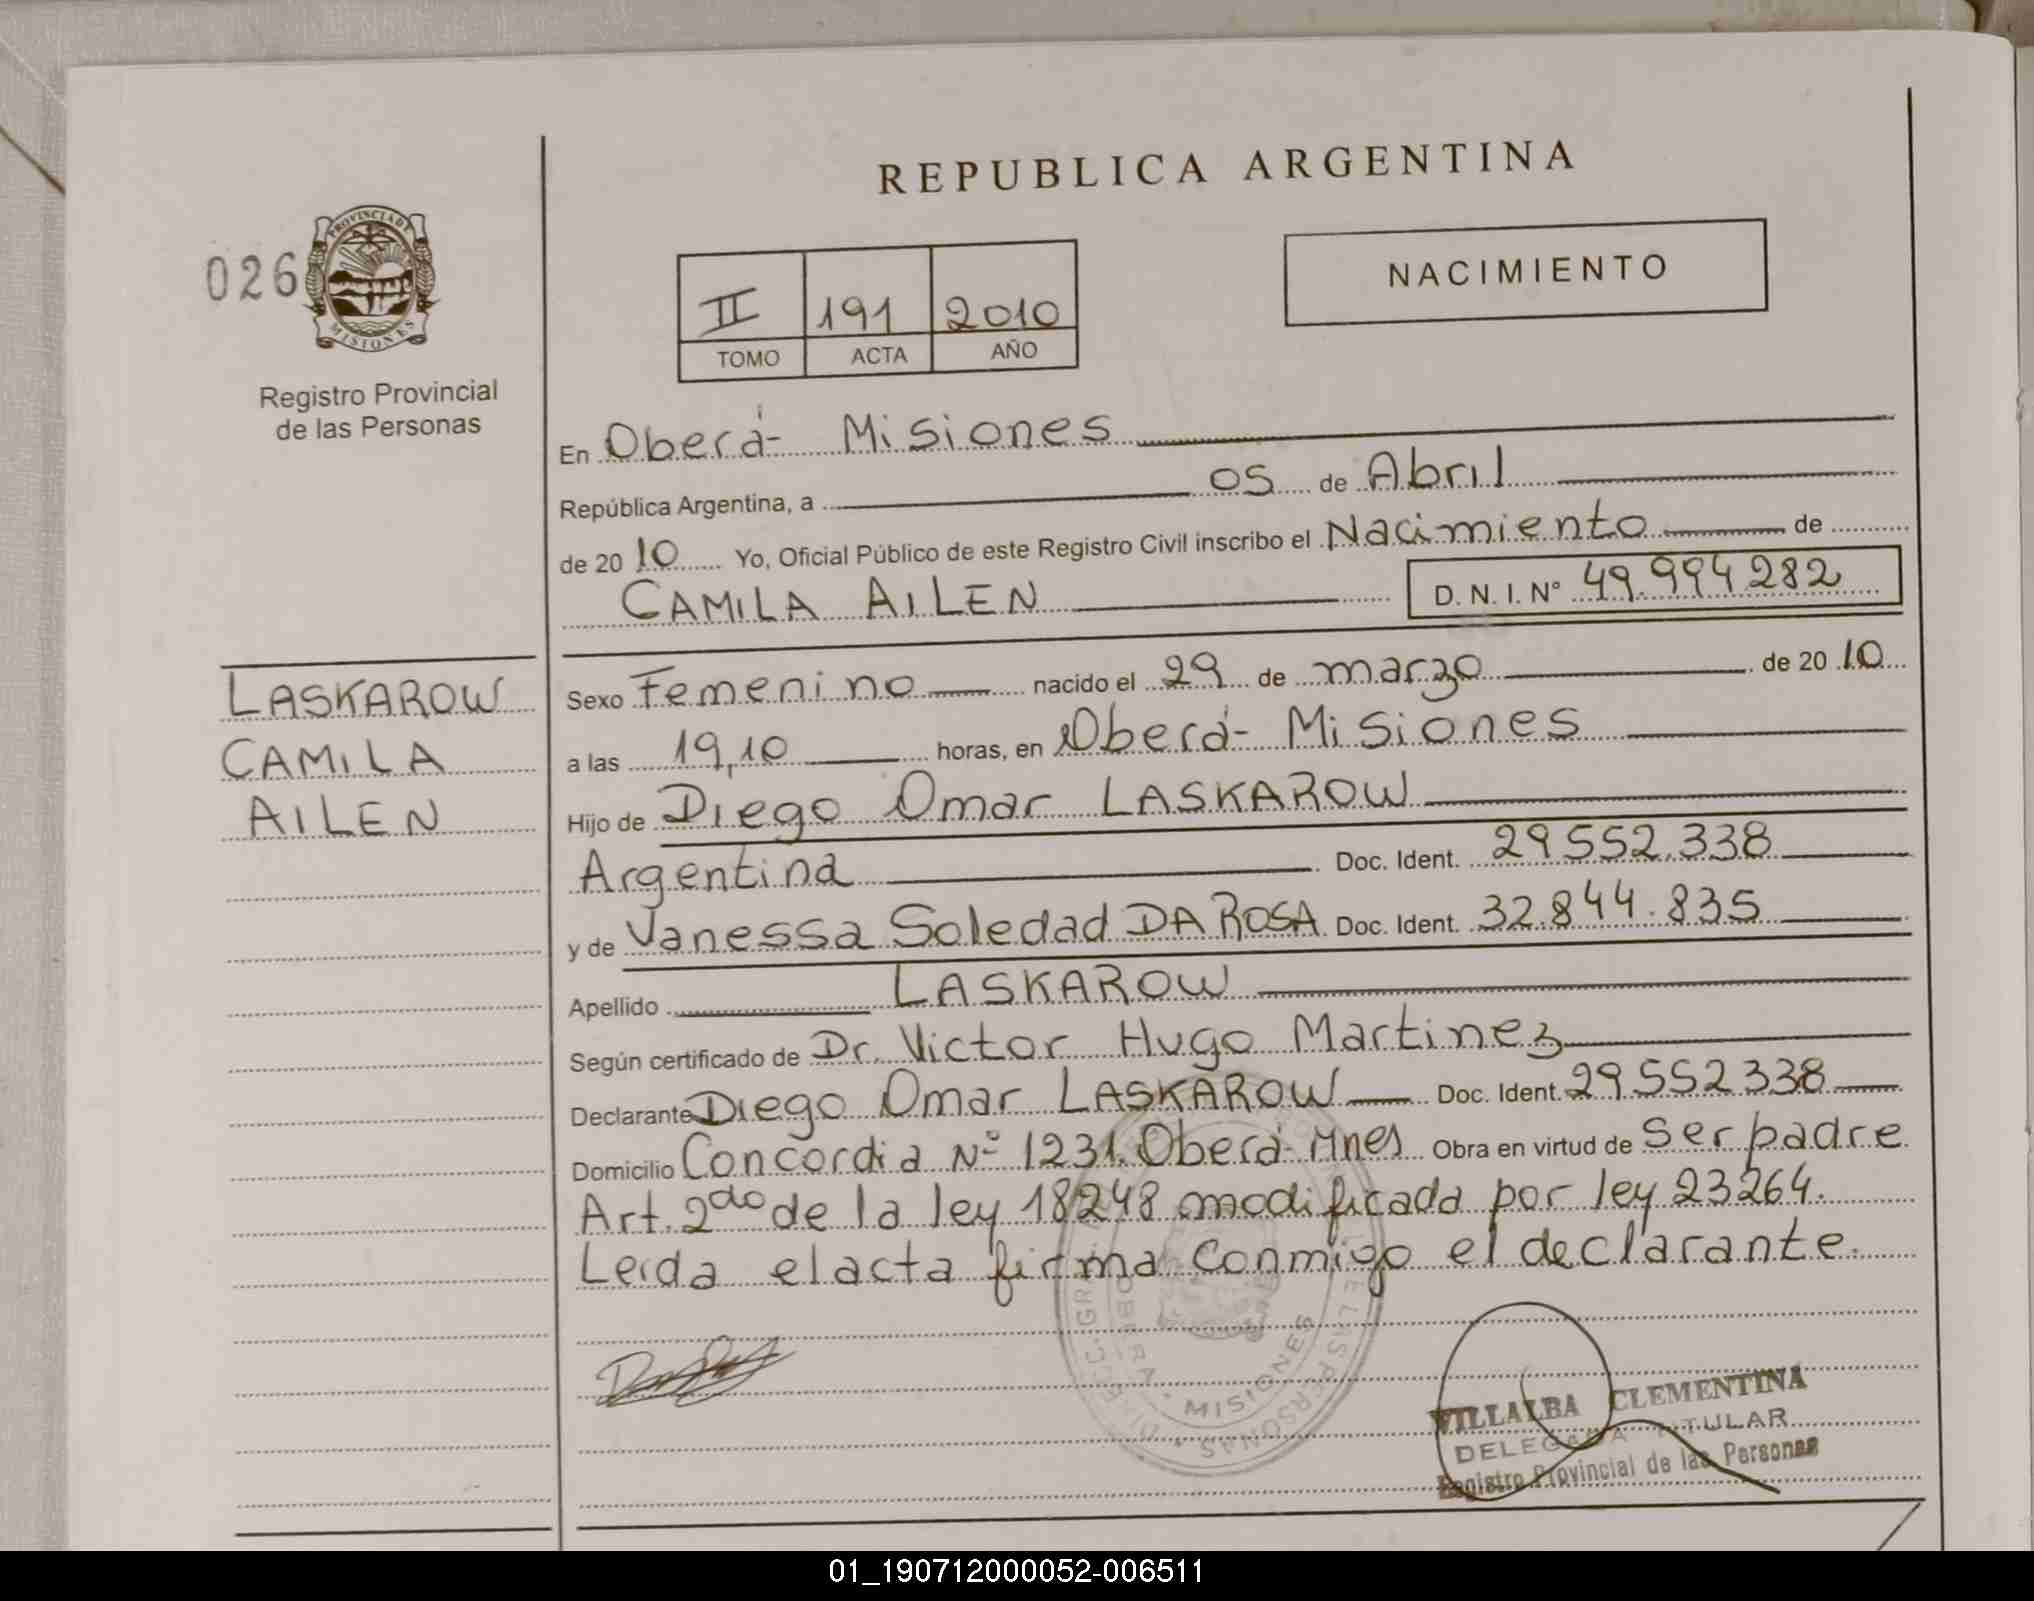 REPUBLICA ARGENTINA
026
PROVINCIA DE MISIONES
Registro Provincial
de las Personas
II 191 2010
TOMO ACTA AÑO
NACIMIENTO
En Oberá- Misiones
República Argentina, a 05 de Abril
de 2010 Yo, Oficial Público de este Registro Civil inscribo el Nacimiento de
CAMILA AILEN D. N. I. Nº 49.994282
LASKAROW
CAMILA
AILEN
Sexo Femenino nacido el 29 de marzo de 2010
a las 19,10 horas, en Oberá- Misiones
Hijo de Diego Omar LASKAROW
Argentina Doc. Ident. 29552.338
y de Vanessa Soledad DA ROSA Doc. Ident. 32.844.835
Apellido LASKAROW
Según certificado de Dr. Victor Hugo Martinez
Declarante Diego Omar LASKAROW Doc. Ident. 29552338
Domicilio Concordia Nº 1231. Oberá- Mnes Obra en virtud de ser padre
Art. 2do de la ley 18248 modificada por ley 23264.
Leida el acta firma conmigo el declarante.
OBERA - MISIONES
VILLALBA CLEMENTINA
DELEGADA TITULAR
Registro Provincial de las Personas
01_190712000052-006511